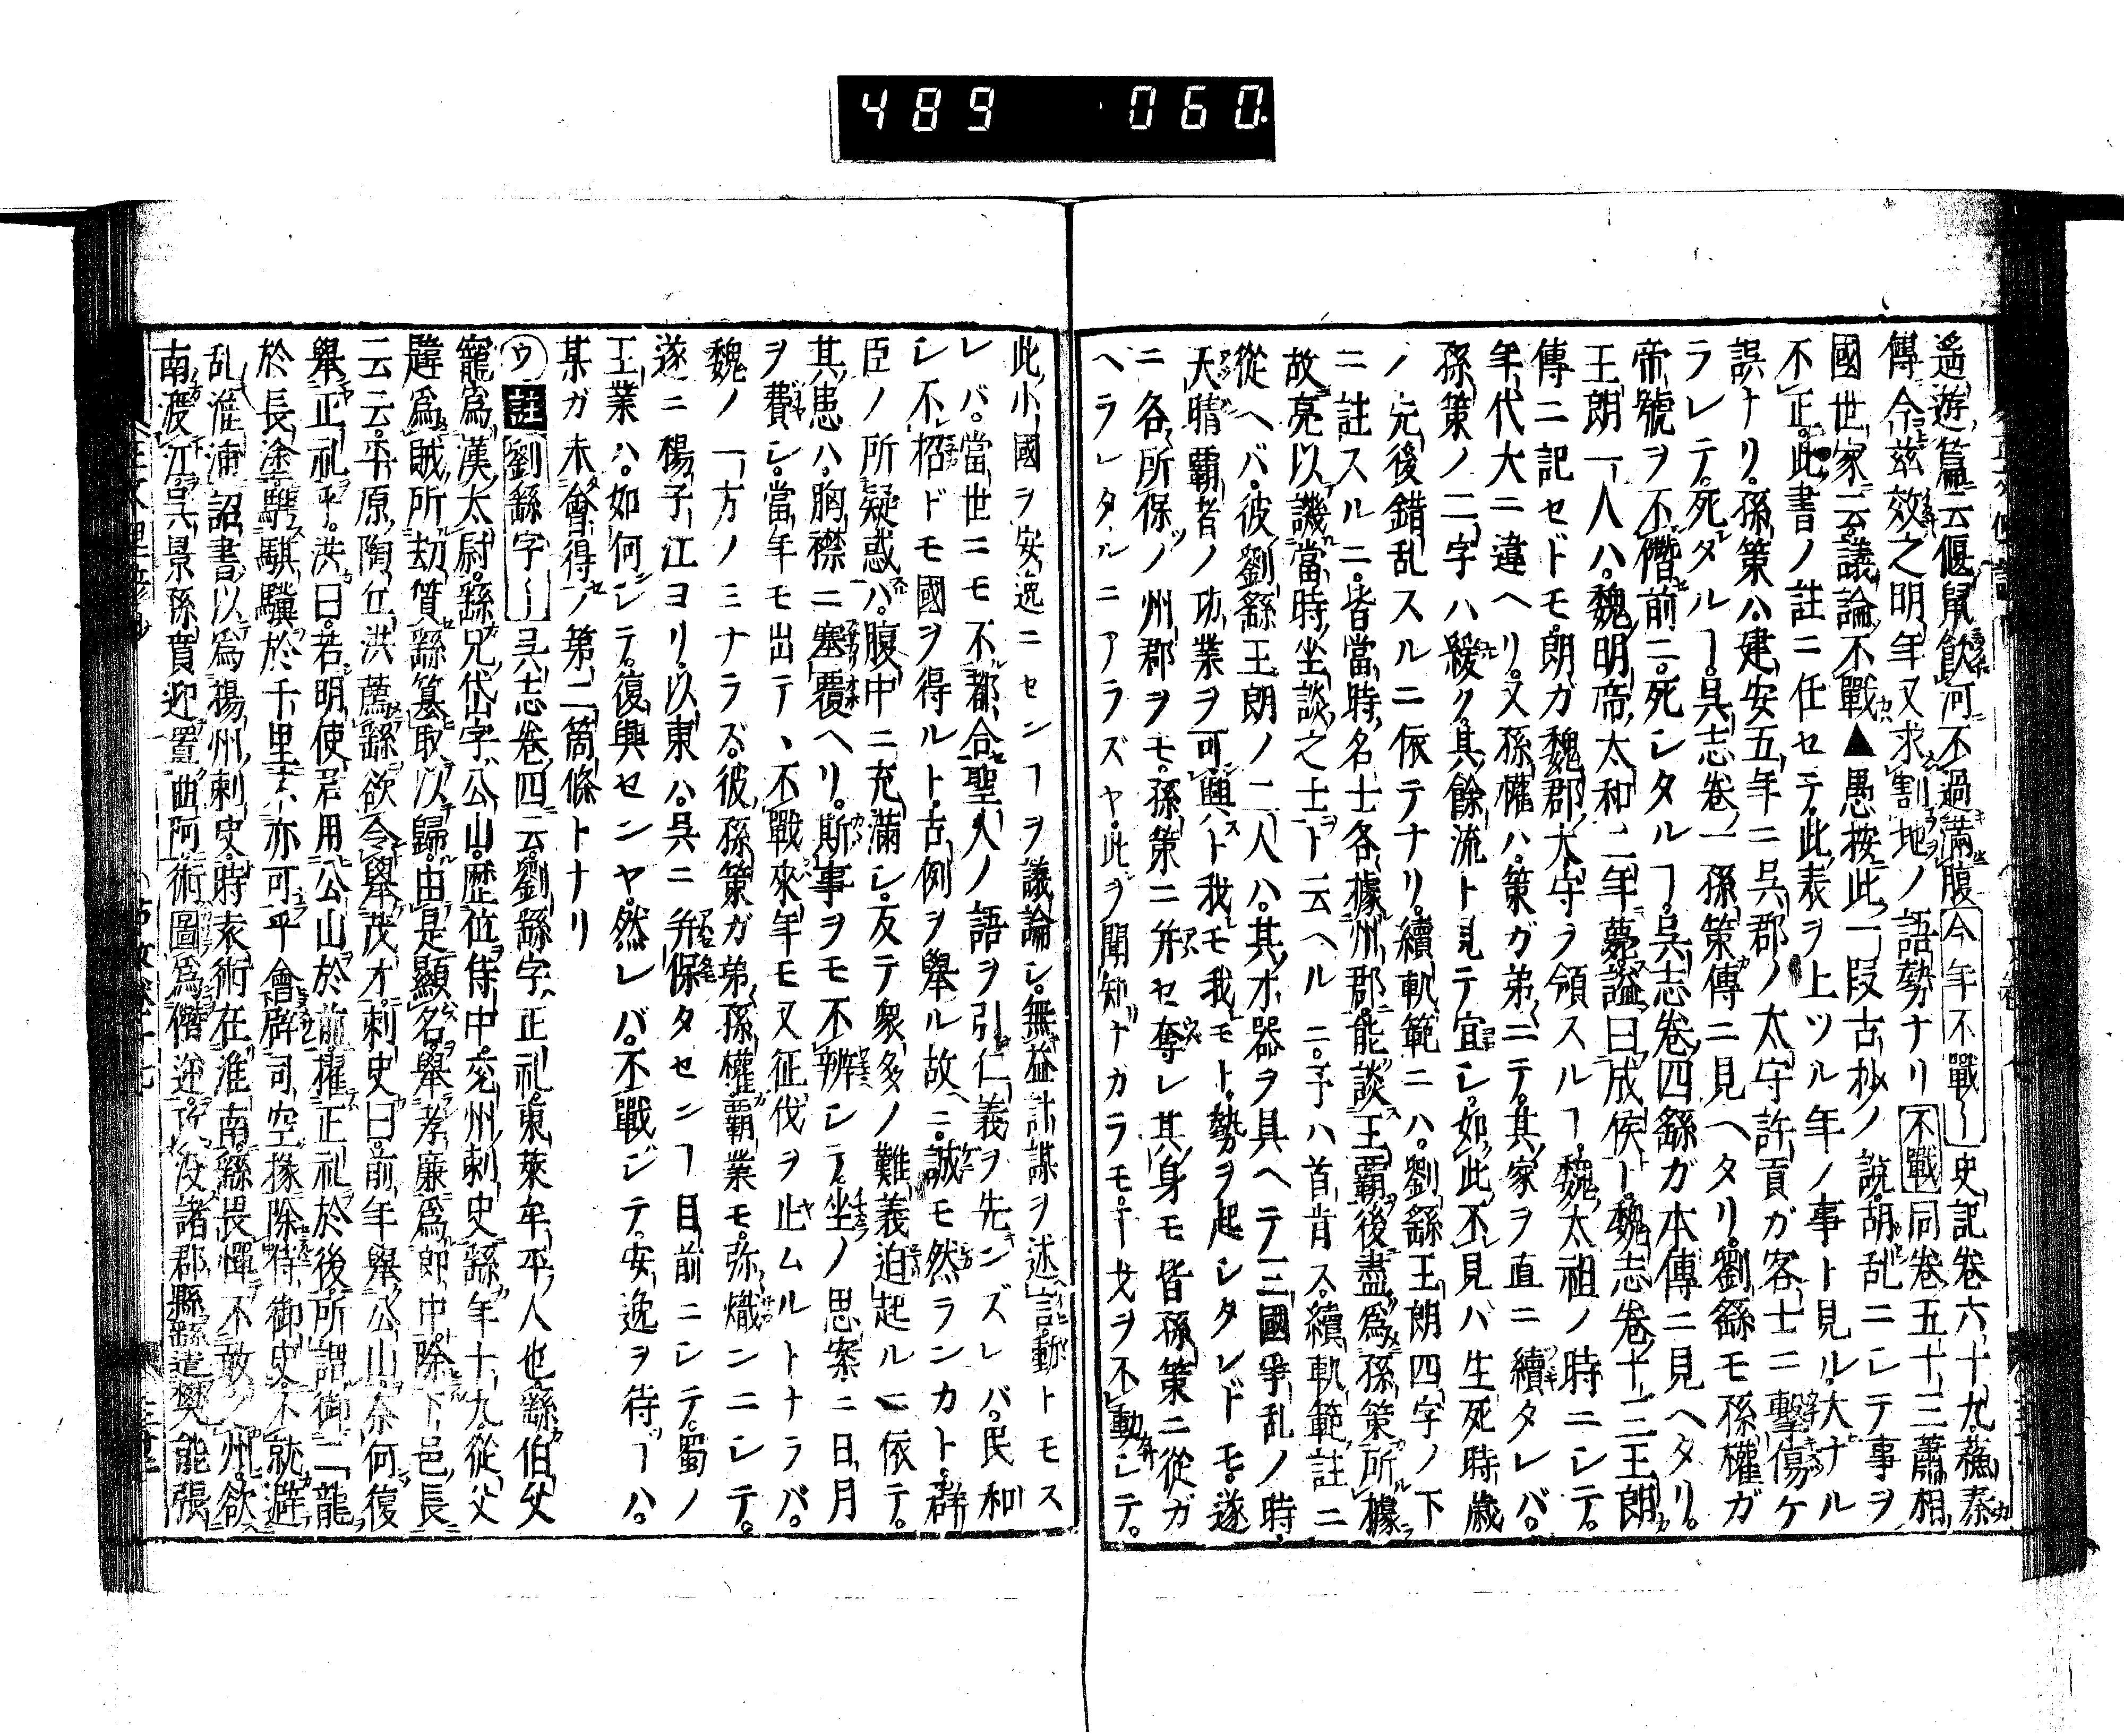 489 060
遥遊篇云偃鼠飲河不過滿腹 今年不戰〡 史記卷六十九蘇秦
傳今茲效之明年又求割地ノ語勢ナリ 不戰 同卷五十三蕭相
國世家云云議論不戰▲愚按此一段古抄ノ說胡乱ニシテ事ヲ
不正此書ノ註ニ任セテ此表ヲ上ツル年ノ事ト見ル大ナル
誤ナリ孫策ハ建安五年ニ吳郡ノ太守許貢ガ客士ニ擊傷ケ
ラレテ死タルヿ吳志卷一孫策傳ニ見ヘタリ劉繇モ孫權ガ
帝號ヲ不僭前ニ死シタルヿ吳志卷四繇ガ本傳ニ見ヘタリ
王朗一人ハ魏明帝太和二年薨謚曰成侯ト魏志卷十三王朗
傳ニ記セドモ朗ガ魏郡太守ヲ領スルヿ魏太祖ノ時ニシテ
年代大ニ違ヘリ又孫權ハ策ガ弟ニテ其家ヲ直ニ續タレバ
孫策ノ二字ハ緩ク其餘流ト見テ宜シ如此不見バ生死時歲
ノ先後錯乱スルニ依テナリ續軌範ニハ劉繇王朗四字ノ下
ニ註スルニ皆當時名士各據州郡能談王霸後盡爲孫策所據
故亮以譏當時坐談之士ト云ヘルニ予ハ首肯ス續軌範註ニ
從ヘバ彼劉繇王朗ノ二人ハ其才器ヲ具ヘテ三國爭乱ノ時
天晴霸者ノ功業ヲ可興ト我モ我モト勢ヲ起シタレドモ遂
ニ各所保ノ州郡ヲモ孫策ニ并セ奪レ其身モ皆孫策ニ從ガ
ヘラレタルニアラズヤ此ヲ聞知ナガラモ干戈ヲ不動シテ
此小國ヲ安逸ニセンヿヲ議論シ無益計謀ヲ述言動トモス
レバ當世ニモ不都合聖人ノ語ヲ引仁義ヲ先ンズレバ民和
レ不招ドモ國ヲ得ルト古例ヲ舉ル故ニ誠モ然ランカト群
臣ノ所疑惑ハ腹中ニ充滿シ友テ衆多ノ難義迫起ルニ依テ
其患ハ胸襟ニ塞覆ヘリ斯事ヲモ不辨シテ坐ノ思案ニ日月
ヲ費シ當年モ出テ丶不戰來年モ又征伐ヲ止ムルトナラバ
魏ノ一方ノミナラズ彼孫策ガ弟孫權霸業モ弥熾ンニシテ
遂ニ楊子江ヨリ以東ハ吳ニ并保タセンヿ目前ニシテ蜀ノ
王業ハ如何シテ復興センヤ然レバ不戰ジテ安逸ヲ待ヿハ
某ガ未會得ノ第二箇條トナリ
ウ 註 劉繇字〡 吳志卷四云劉繇字正礼東萊牟平人也繇伯父
寵爲漢太尉繇兄岱字公山歷位侍中兗州刺史繇年十九從父
韙爲賊所劫質繇篡取以歸由是顯名舉孝廉爲郎中除下邑長
云云平原陶丘洪薦繇欲令舉茂才刺史曰前年舉公山奈何復
舉正礼乎洪曰若明使君用公山於前擢正礼於後所謂御二龍
於長塗騁騏驥於千里不亦可乎會辟司空掾除侍御史不就避
乱淮浦詔書以爲揚州刺史時袁術在淮南繇畏憚不敢之州欲
南渡江吳景孫賁迎置曲阿術圖爲僭逆攻沒諸郡縣繇遣樊能張